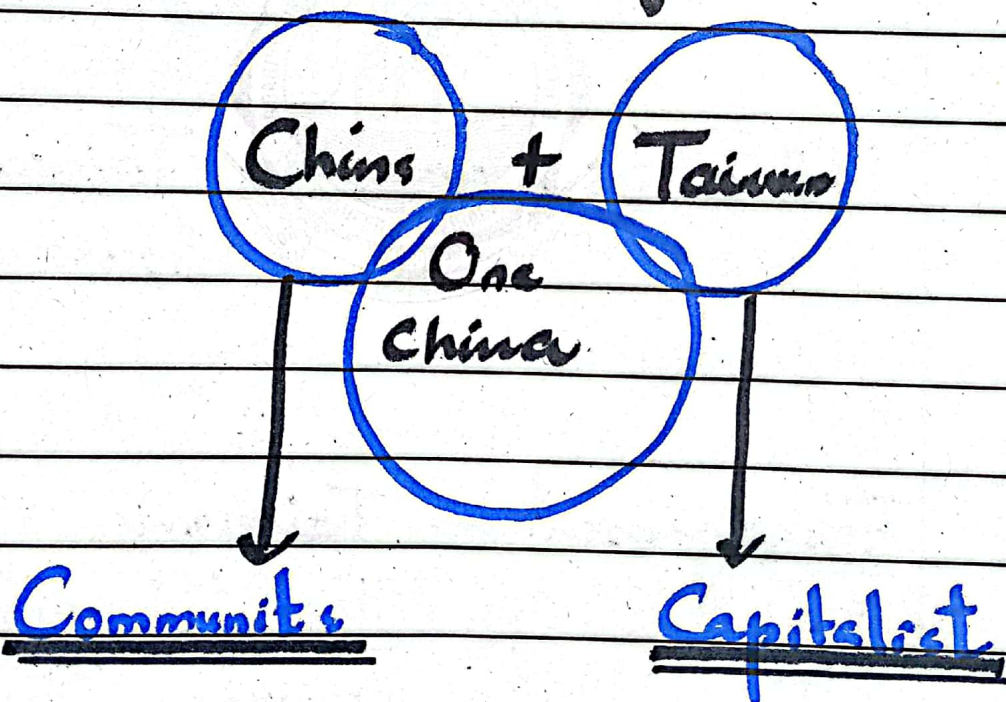 China + Taiwan
One
China
Communits
Capitalist